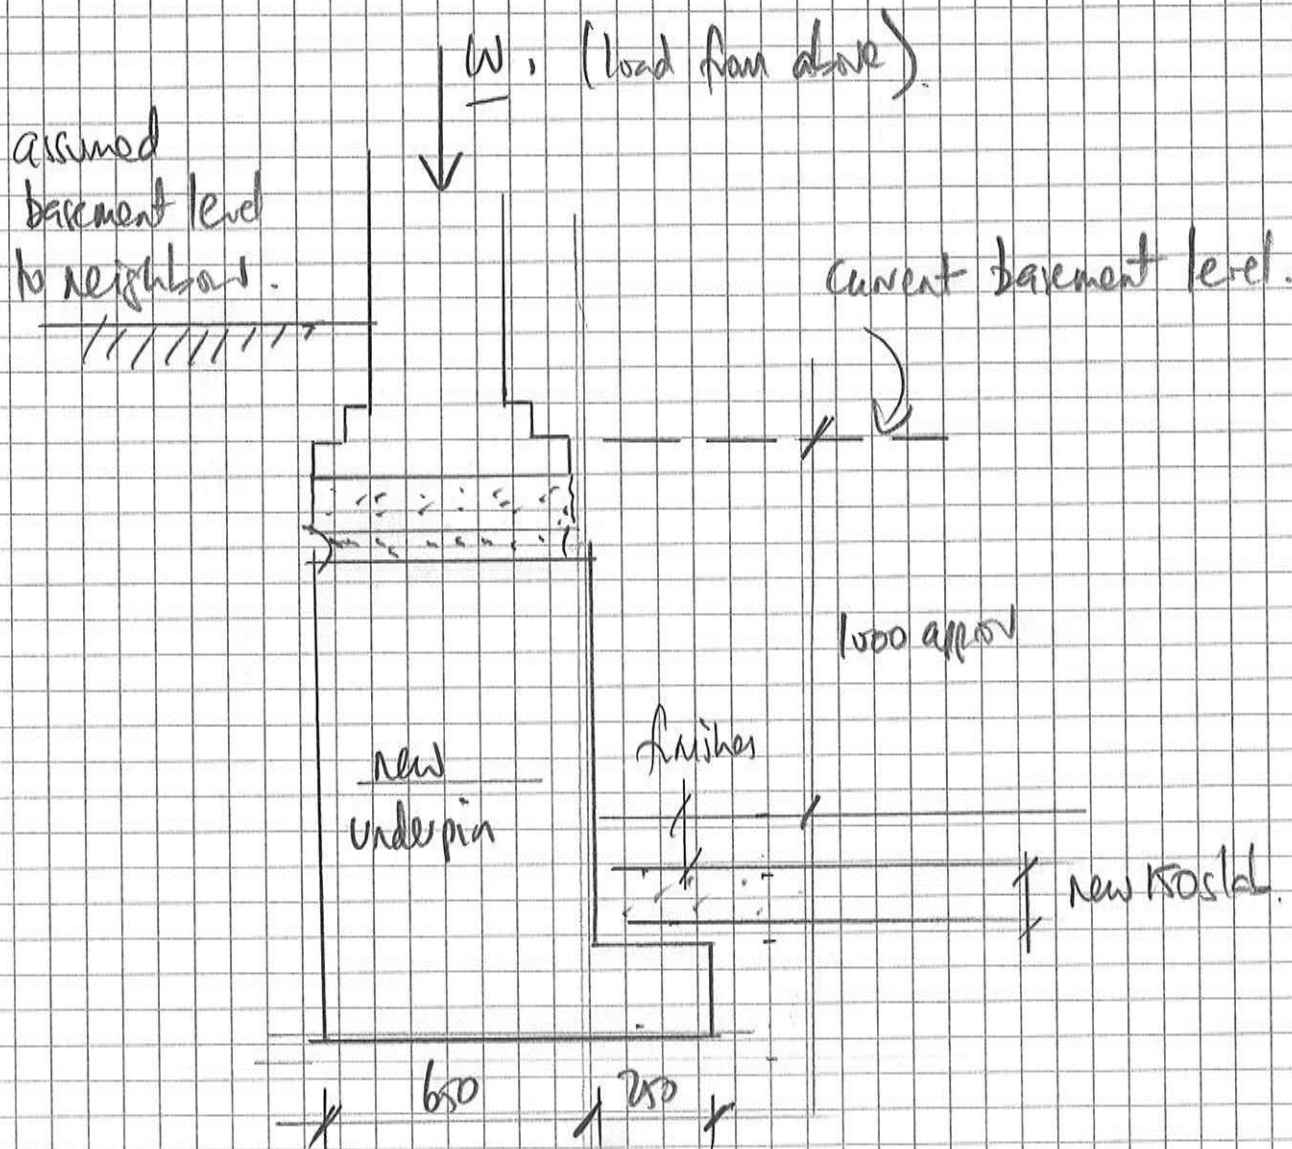 W, (load from above).
assumed
basement level
to neighbour.
current basement level.
1000 approx
finishes
new
underpin
new 150 slab.
650
250